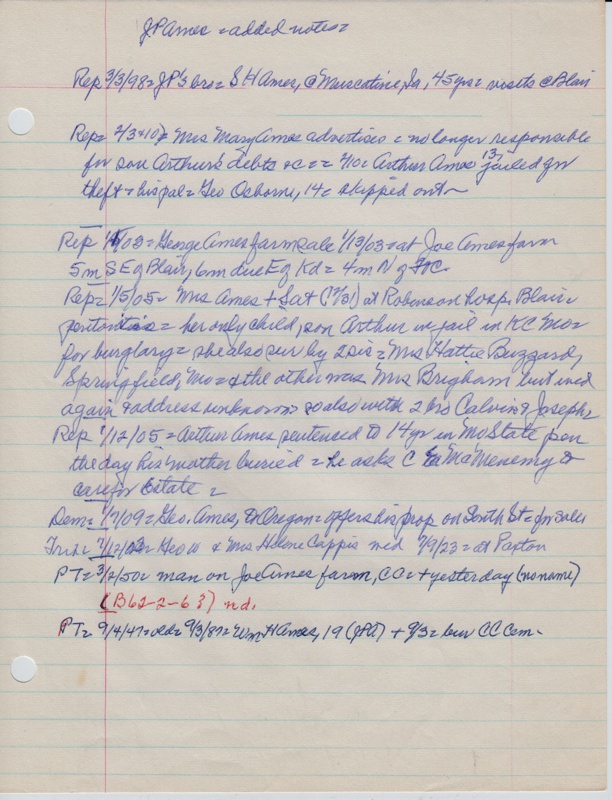 JP Ames = added notes =
Rep 3/3/98 = JP's bro = S H Ames, @ Muscatine, Ia, 45 yrs = visits @ Blair
Rep = 2/3 + 10 = Mrs Mary Ames advertises = no longer responsible
for son Arthur's debts + c = = Arthur Ames 13 = jailed for
theft = his pal = Geo Osborne, 14 = skipped out ~
Rep 1/ /03 = George Ames farm sale 1/13/03 = at Joe Ames farm
5m SE of Blair, 6m due E of Kd = 4m N of
Rep = 1/5/05 = Mrs Ames + Sat (12/31) at Robinson hosp. Blair =
= her only child, son Arthur in jail in KC Mo =
for burglary = she also sur by 2 sis = Mrs Hattie Buzzard,
Springfield, Mo = & the other was Mrs Brigham but wed
again & address unknown = so also with 2 bro Calvin & Joseph =
Rep 1/12/05 = Arthur Ames sentenced to 14 yr in Mo State pen
the day his mother buried = he asks C McMenemy to
care for Estate =
Dem = 1/7/09 = Geo. Ames, to Oregon = offers his prop on South St = for sale
= Geo W & Mrs Helene Cappis wed 7/9/23 = at Paxton
PT = 3/2/50 = man on Joe Ames farm, CC = + yesterday (no name)
(B62-2-6?) nd.
PT = 9/4/47 = old = 9/3/87 = Wm H Ames, 19 (JPA) + 9/3 = bur CC Cem.